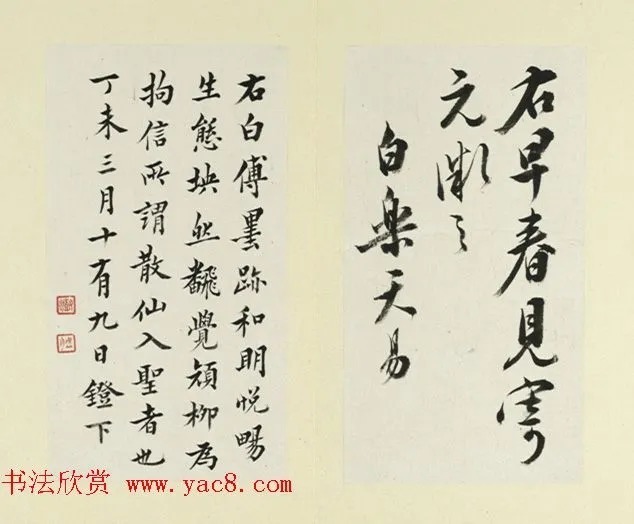 右早春見寄
元微之
白楽天易
右白傅墨跡和明悅暢
生態坱然飜覺顏柳為
拘信所謂散仙入聖者也
丁未三月十有九日鐙下
书法欣赏 www.yac8.com